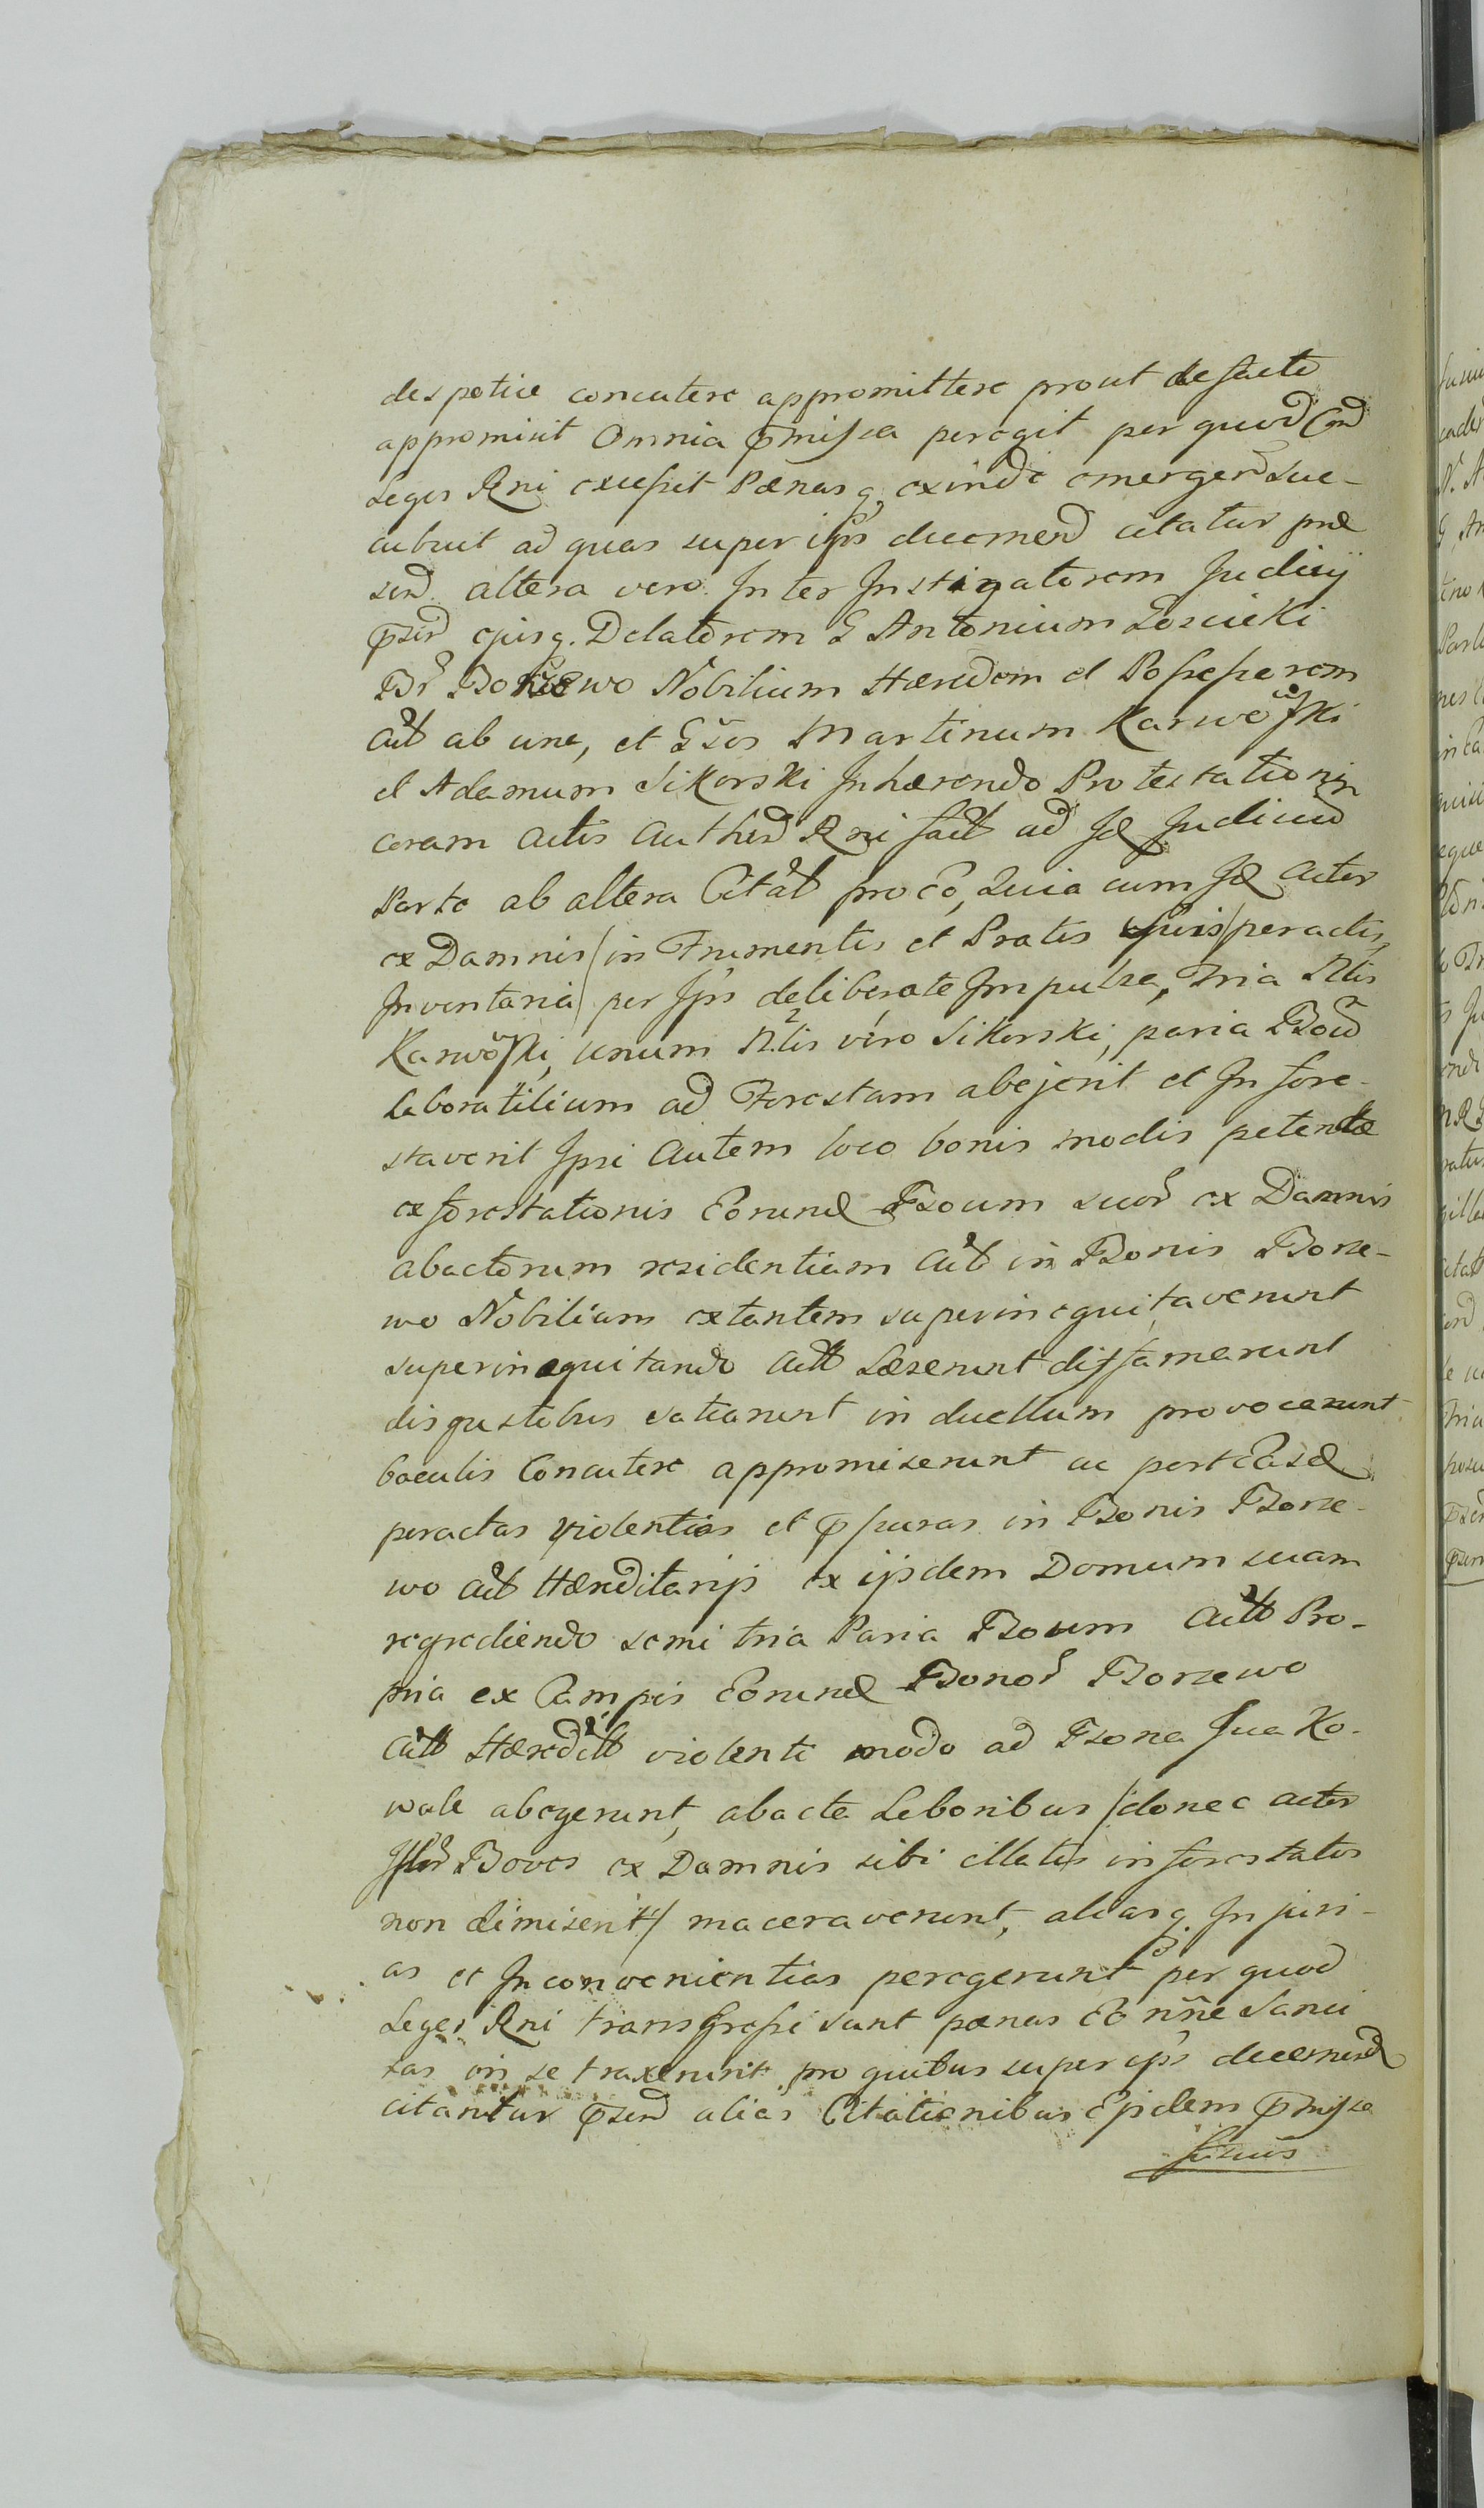 despotice concutere appromittere prout de facto
appromisit Omnia p̄missa peregit per quod Cōnd
Leges Rni excessit Pænasq exinde emergend suc-
cubuit ad quas super ip̄s decernend citatur præ
send. altera vero Inter Instigatorem Judicij
p̄send ejusq. Delatorem G Antonium Łoscicki
Br̄ Borzewo Nobilium Hæredem et Possessorem
Act̄ ab una, et Gsos Martinum Karwoſki
et Adamum Sikorski Inhærendo Protestationi
coram actis Authen Rni fact ad Id Judicium
Parte ab altera Citat pro eo, Quia cum Id Actor
ex Damnis / in Frumentis et Pratis suis / peractis,
Inventaria / per Ip̄s deliberate Impulsa, Tria Nlis
Karwoſki, unum Nlis vero Sikorski, paria Boum
laboratilium ad Forestam abegerit et Infore-
staverit Ipsi Autem loco bonis modis petendæ
exforestationis Eorund Boum suor ex Damnis
abactorum residentiam Act in Bonis Borze-
wo Nobilium extantem superinequitaverunt
superinequitando Act Læserunt diffamarunt
disgustibus satiarunt in duellum provocarunt
baculis Concutere appromiserunt ac post Easd
peractas violentias et p̄ſsuras in Bonis Borze-
wo Act Hæreditarijs ex ijsdem Domum suam
regrediendo semi tria Paria Boum Act Pro-
pria ex Campis Eorund Bonor Borzewo
Act Hæredit violento modo ad Bona Sua Ko-
wale abegerunt, abacta Laboribus / donec actor
Iſtor Boves ex Damnis sibi illatis inforestatos
non dimiserit / maceraverunt, aliasq. Injuri-
as et Inconvenientias peregerunt per quod
Leges Rni transgressi sunt pænas Eo nñe Sanci
tas in se traxerunt pro quibus super ip̄s decernend
citantur p̄send alias Citationibus Ejsdem p̄missa
fusius